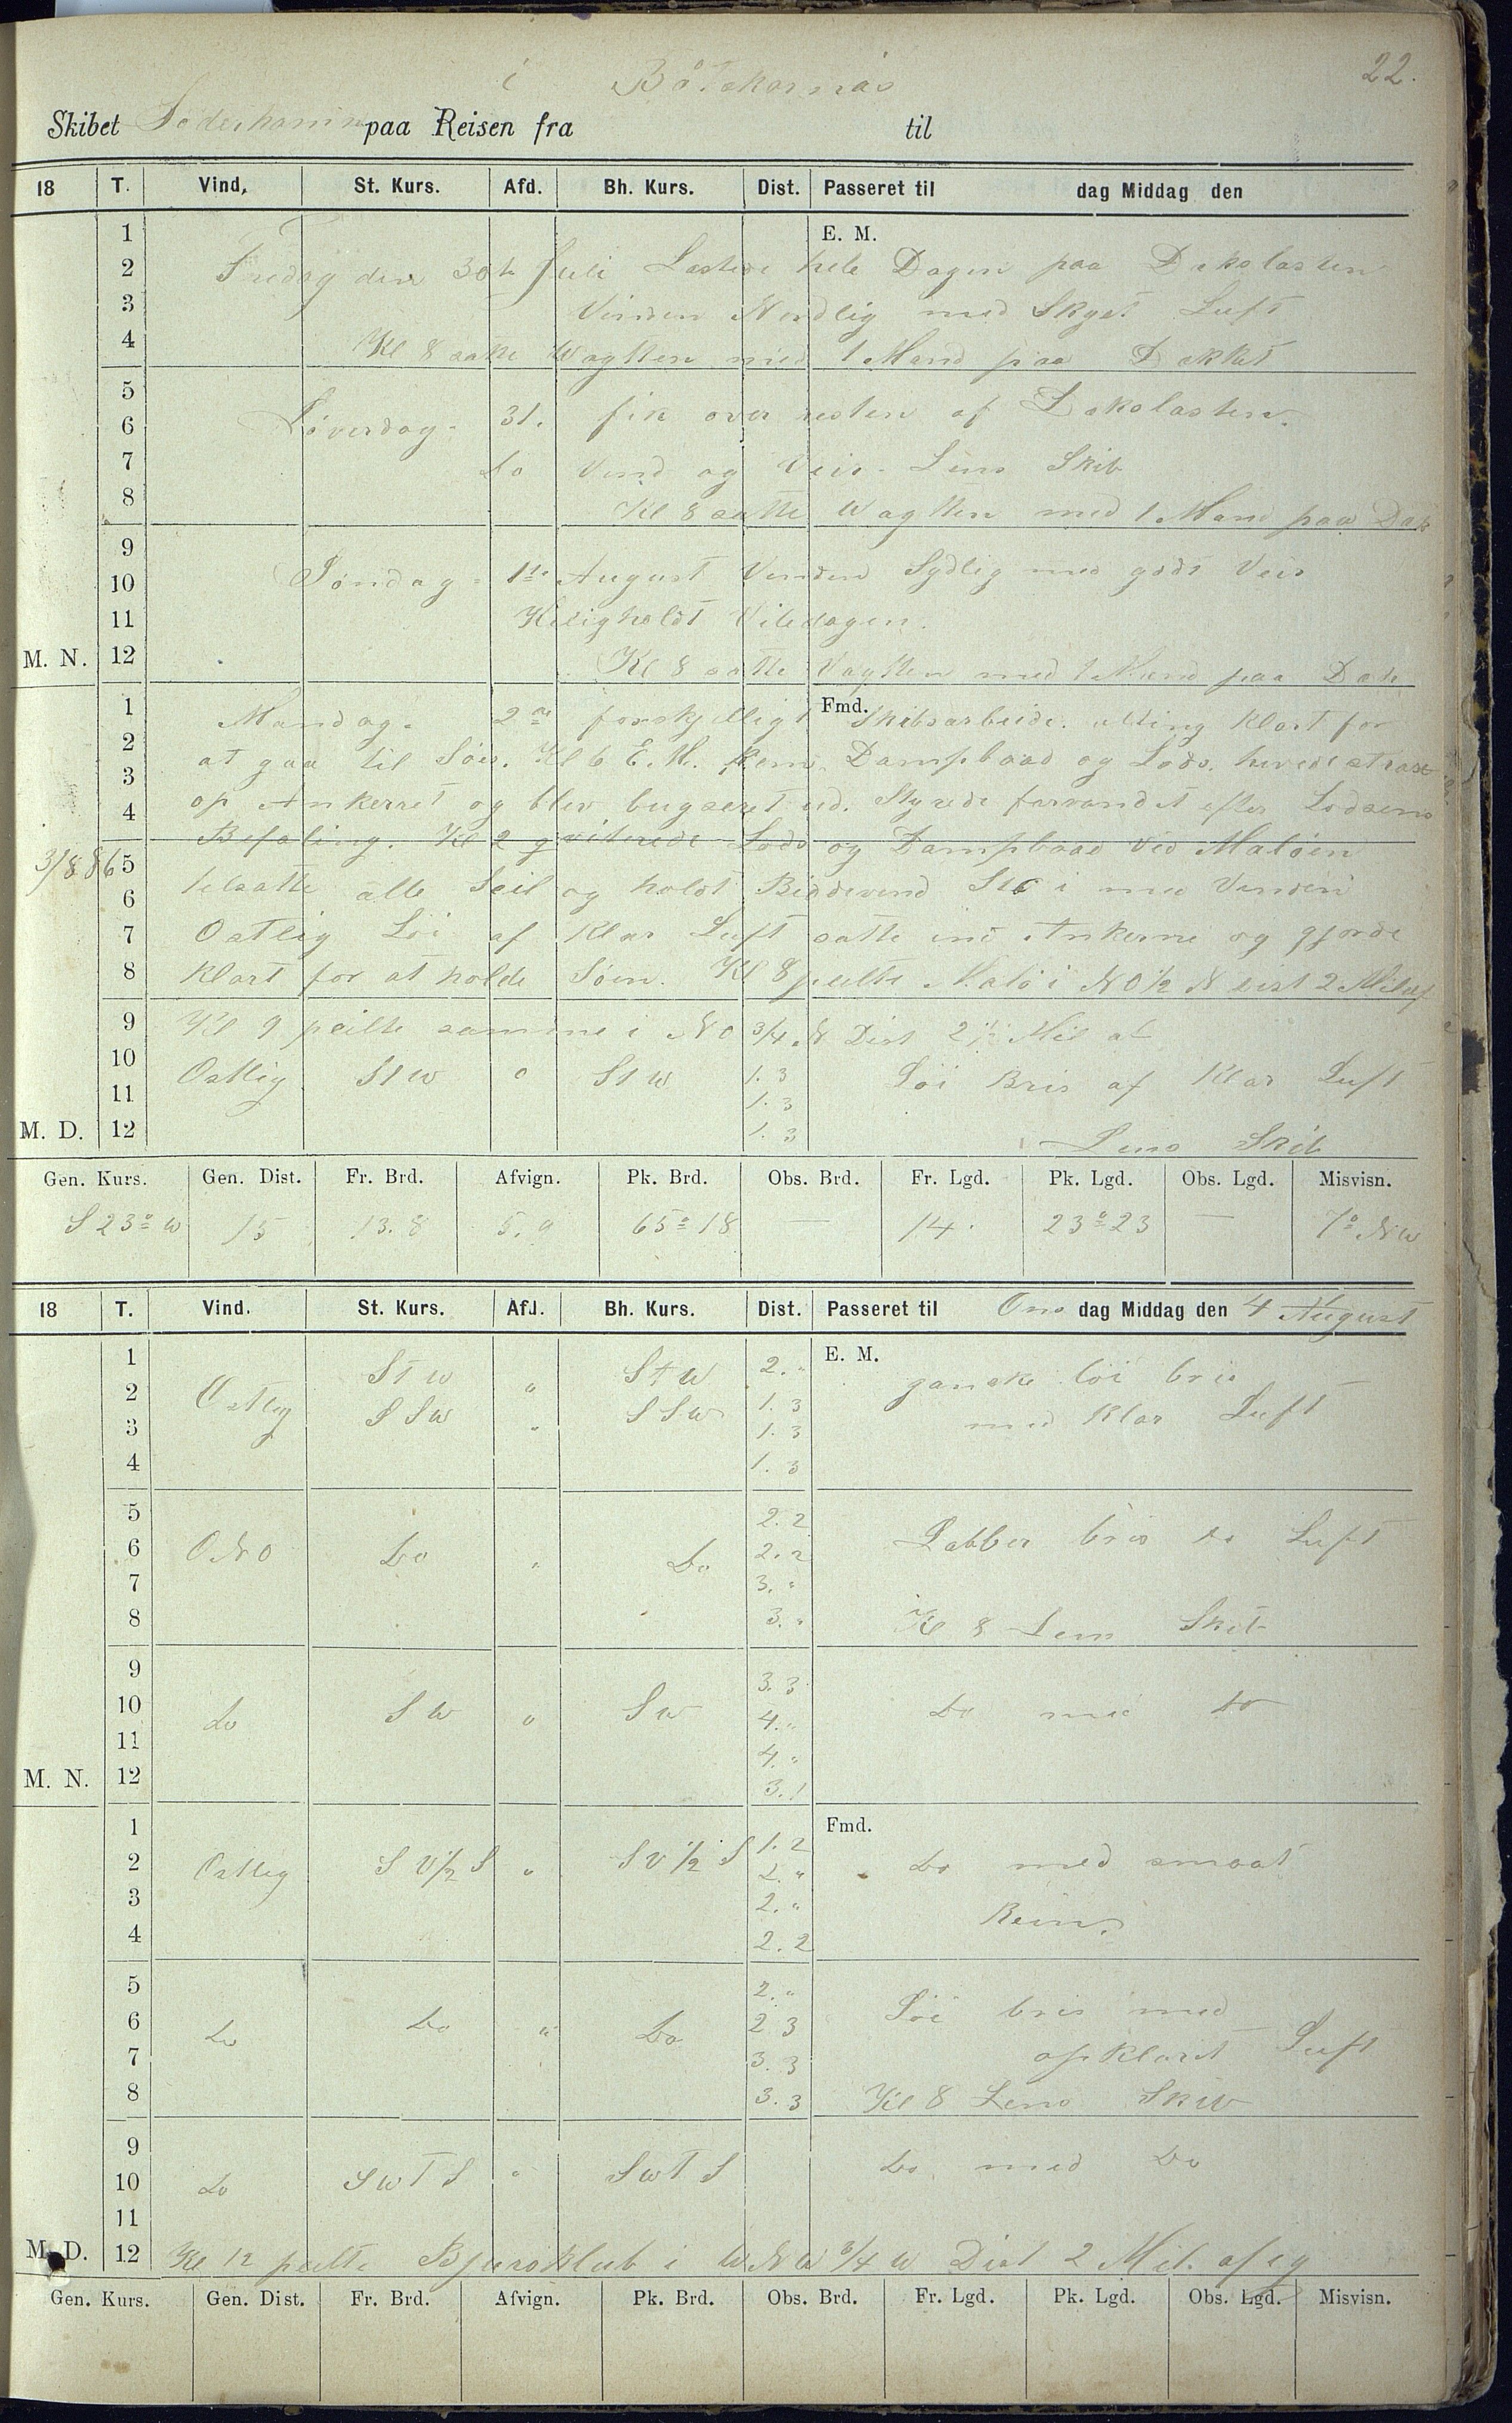 i Båtskarsnäs 22.
Skibet Söderhamn paa Reisen fra til
18 T. Vind, St. Kurs. Afd. Bh. Kurs. Dist. Passeret til dag Middag den
1 E. M.
2 Fredag den 30te Juli Lastede hele Dagen paa Dækslasten
3 Vinden Nordlig med Skyet Luft
4 Kl 8 satte Wagtten med 1 Mand paa Dækket
5
6 Løverdag 31. fik over resten af Dækslasten.
7 Do Vind og Veir. Lens Skib
8 Kl 8 satte Wagtten med 1 Mand paa Dæk
9
10 Søndag 1te August Vinden Sydlig med godt Veir
11 Heligholdt Viledagen.
M. N. 12 Kl 8 satte Vagtten med 1 Mand paa Dæk
1 Fmd.
Mandag 2den forskjelligt Skibsarbeide. alting Klart for
2 at gaa til Søes. Kl 6 E. M. kom Dampbaad og Lods. hevede strax
3
4 op Ankerret og blev bugseret ud. Styrede farvandet efter Lodsens
Befaling. Kl 2 qviterede Lods og Dampbaad ved Maløen
3/8 86 5 tilsatte alle Seil og holdt Biddevind StW med Vinden
6
7 Ostlig Løi af Klar Luft satte ind Ankerne og gjorde
8 Klart for at holde Søen. Kl 8 peilte Malø i NO ½ N Dist 2 Mil af
9 Kl 9 peilte samme i NO ¾ N Dist 2½ Mil af
10 Ostlig StW " StW 1.3 Løi Bris af Klar Luft
11 1.3
M. D. 12 1.3 Lens Skib
Gen. Kurs. Gen. Dist. Fr. Brd. Afvign. Pk. Brd. Obs. Brd. Fr. Lgd. Pk. Lgd. Obs. Lgd. Misvisn.
S 23° W 15 13.8 5.9 65° 18 — 14. 23° 23 — 7° NW
18 T. Vind. St. Kurs. Afd. Bh. Kurs. Dist. Passeret til Ons dag Middag den 4 August
1 StW " StW 2." E. M. ganske löi bris
2 Ostlig SSW " SSW 1.3 med Klar Luft
3 1.3
4 1.3
5 2.2
6 ONO Do " Do 2.2 Labber bris Do Luft
7 3."
8 3." Kl 8 Lens Skib
9 3.3
10 Do SW " SW 4." Do med Do
11 4."
M. N. 12 3.1
1 1.2 Fmd.
2 Ostlig SV ½ S " SV ½ S 2." Do med smaat
3 2." Rein.
4 2.2
5 2."
6 Do Do " Do 2 3 Löi bris med
7 3.3 opklaret Luft
8 3.3 Kl 8 Lens Skib
9
10 Do SWTS " SWTS Do med Do
11
M. D. 12 Kl 12 peilte Bjuroklub i WNW ¾ W Dist 2 Mil. af sig
Gen. Kurs. Gen. Dist. Fr. Brd. Afvign. Pk. Brd. Obs. Brd. Fr. Lgd. Pk. Lgd. Obs. Lgd. Misvisn.